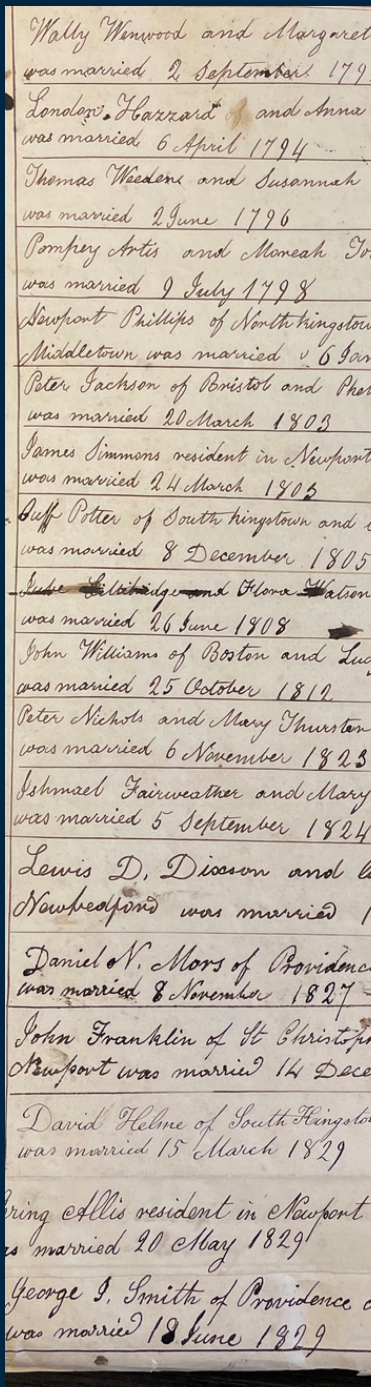 Wally Wenwood and Margaret
was married 2 September 179
London Hazzard and Anna
was married 6 April 1794
Thomas Weedene and Susannah
was married 2 June 1796
Pompey Artis and Moreah
was married 9 July 1798
Newport Phillips of North kingstow
Middletown was married 6 Jan
Peter Jackson of Bristol and Phe
was married 20 March 1803
James Simmons resident in Newport
was married 24 March 1805
Cuff Potter of South kingstown and
was married 8 December 1805
and Flora Watson
was married 26 June 1808
John Williams of Boston and Luc
was married 25 October 1812
Peter Nichols and Mary Thurston
was married 6 November 1823
Ishmael Fairweather and Mary
was married 5 September 1824
Lewis D. Dixson and
Newbedford was married 1
Daniel N. Mors of Providence
was married 8 November 1827
John Franklin of St Christoph
Newport was married 14 Dece
David Helme of South Kingsto
was married 15 March 1829
ring Allis resident in Newport
as married 20 May 1829
George J. Smith of Providence
was married 18 June 1829